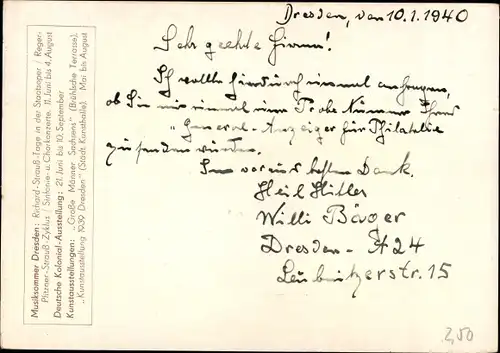 Dresden, den 10.1.1940
Sehr geehrte Firma!
Ich wollte hierdurch einmal anfragen,
ob Sie mir einmal eine Probe Nummer Ihres
„General-Anzeiger für Philatelie
zu senden würden.
Im voraus besten Dank.
Heil Hitler
Willi Bäger
Dresden-A 24
Leubnitzerstr. 15
2,50
Musiksommer Dresden: Richard-Strauß-Tage in der Staatsoper / Reger-
Pfitzner-Strauß-Zyklus / Sinfonie- u. Chorkonzerte. 11. Juni bis 4. August
Deutsche Kolonial-Ausstellung: 21. Juni bis 10. September
Kunstausstellungen: „Große Männer Sachsens" (Brühlsche Terrasse),
„Kunstausstellung 1939 Dresden" (Städt. Kunsthalle). Mai bis August